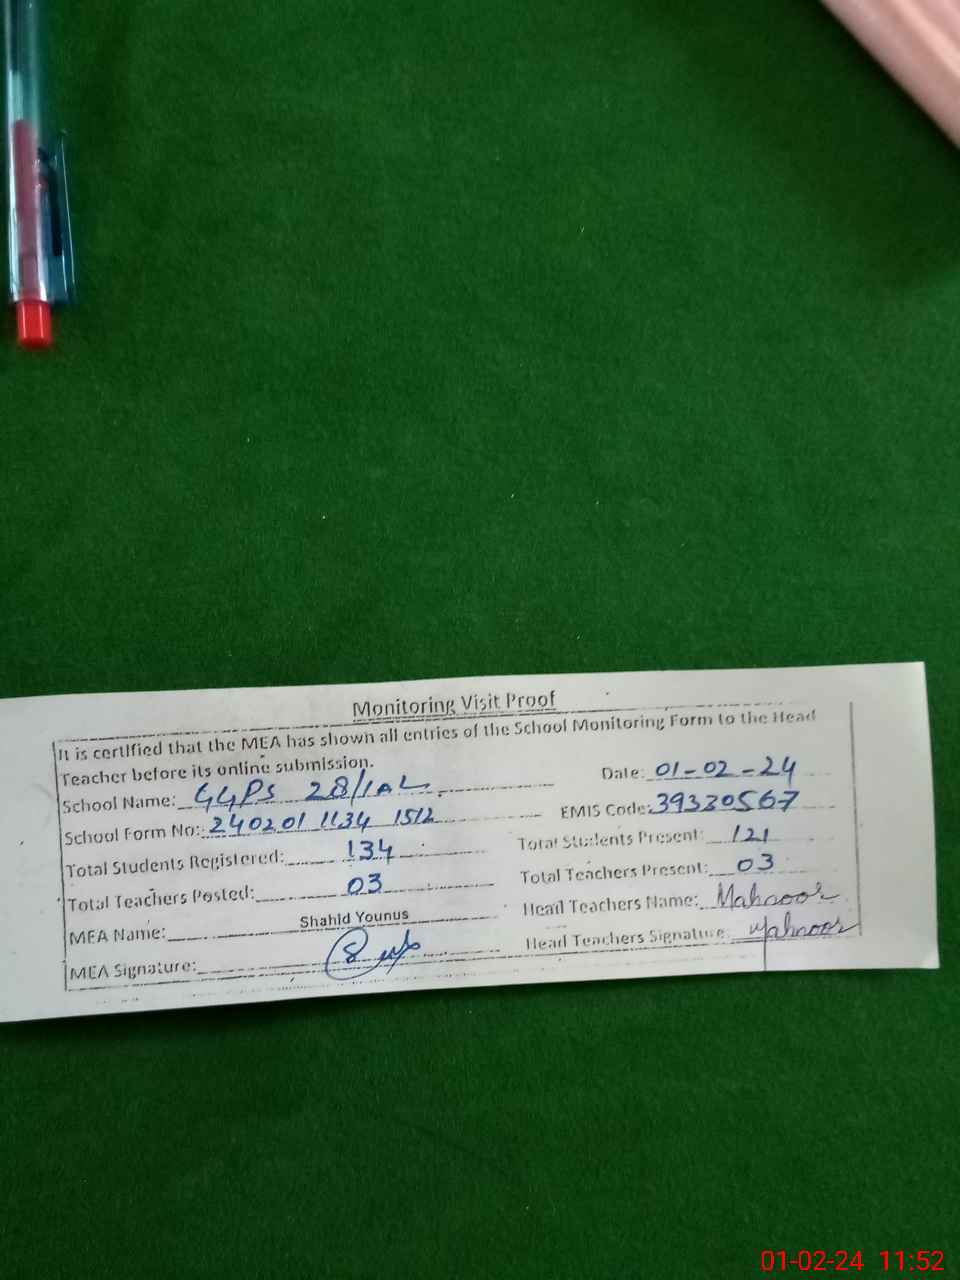 Monitoring Visit Proof
It is certified that the MEA has shown all entries of the School Monitoring Form to the Head
Teacher before its online submission.
Date: 01-02-24
School Name: GGPS 28/1AL
EMIS Code: 39330567
School Form No: 240201 1134 1512
Total Students Present: 121
Total Students Registered: 134
Total Teachers Present: 03
Total Teachers Posted: 03
Head Teachers Name: Mahnoor
MEA Name: Shahid Younus
Head Teachers Signature: Mahnoor
MEA Signature:
01-02-24 11:52